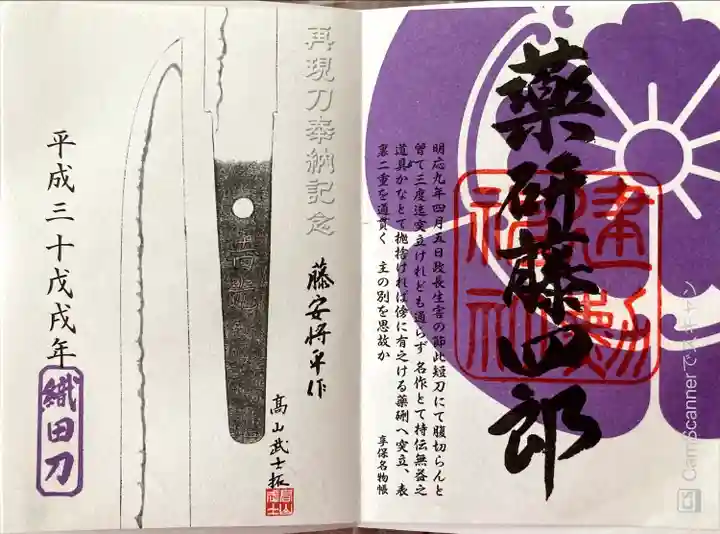 薬研藤四郎
建勲神社
明応九年四月五日政長生害の節此短刀にて腹切らんと
曽て三度迄突立けれども通らず名作とて持伝無益之
道具かなとて抛捨ければ傍に有之ける薬研へ突立、表
裏二重を通貫く 主の別を思故か
享保名物帳
再現刀奉納記念
藤安将平作
高山武士拓
平成三十戊戌年
織田刀
CS CamScannerでスキャン